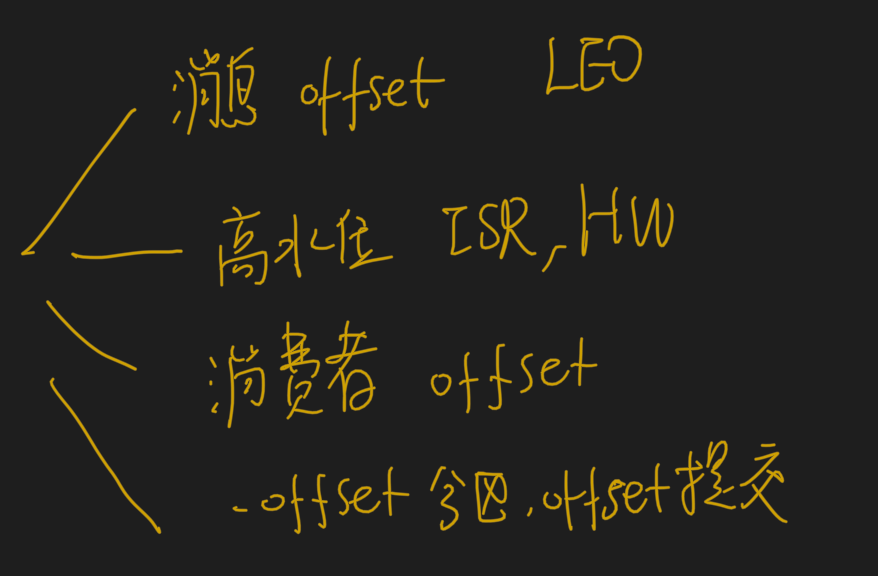 消息 offset LEO
高水位 ISR, HW
消费者 offset
-offset 分区, offset提交